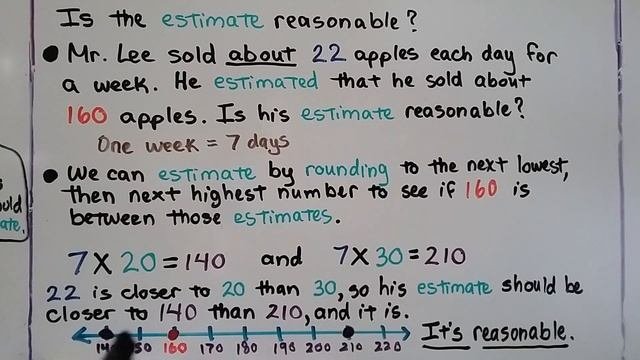 Is the estimate reasonable?
● Mr. Lee sold about 22 apples each day for
a week. He estimated that he sold about
160 apples. Is his estimate reasonable?
One week = 7 days
● We can estimate by rounding to the next lowest,
then next highest number to see if 160 is
between those estimates.
7 X 20 = 140 and 7 X 30 = 210
22 is closer to 20 than 30, so his estimate should be
closer to 140 than 210, and it is.
160 170 180 190 200 210 220 It's reasonable.